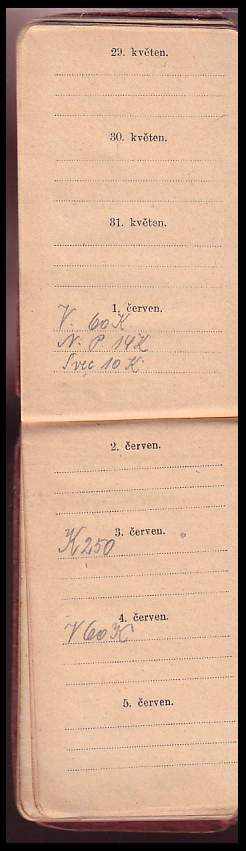 29. květen.
30. květen.
31. květen.
1. červen.
V. 60 K
N. P 14 K
Švec 10 K.
2. červen.
3. červen.
K 250
4. červen.
V 60 K
5. červen.